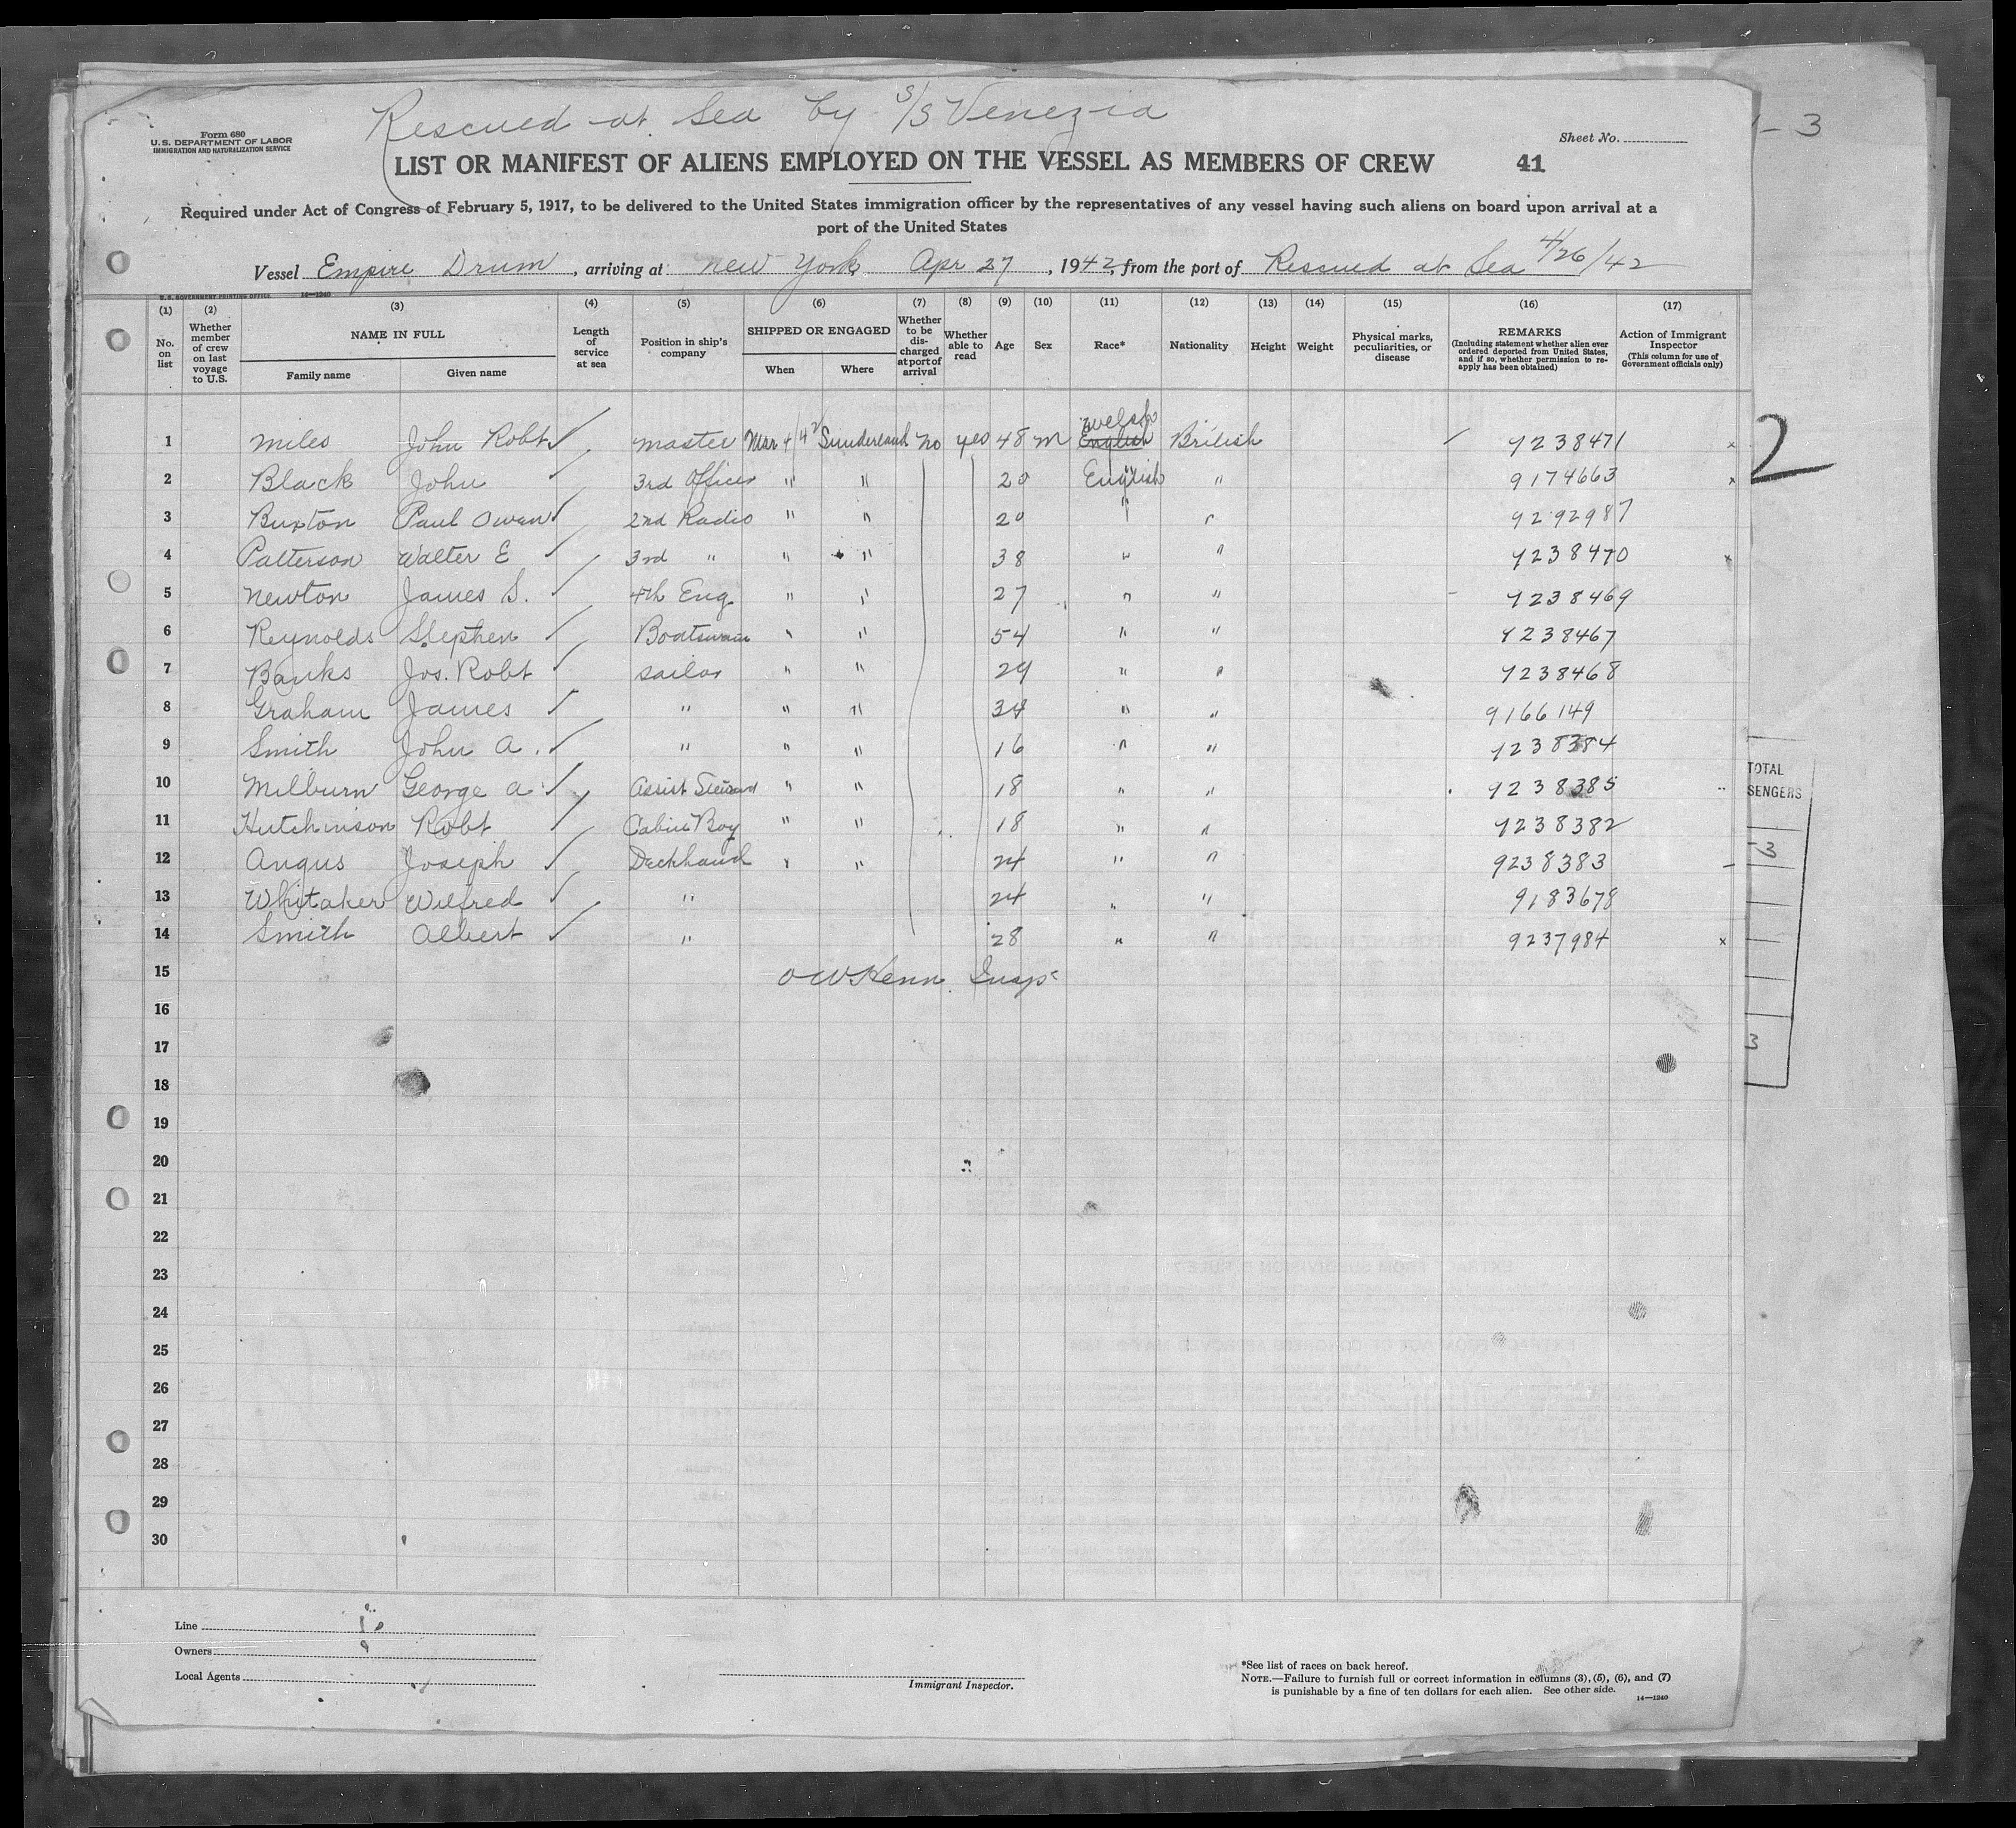 Rescued at Sea by S/S Venezia
Form 680
U.S. DEPARTMENT OF LABOR
IMMIGRATION AND NATURALIZATION SERVICE
Sheet No.
- 3
LIST OR MANIFEST OF ALIENS EMPLOYED ON THE VESSEL AS MEMBERS OF CREW 41
Required under Act of Congress of February 5, 1917, to be delivered to the United States immigration officer by the representatives of any vessel having such aliens on board upon arrival at a
port of the United States
Vessel Empire Drum, arriving at New York Apr 27, 1942, from the port of Rescued at Sea 4/26/42
U.S. GOVERNMENT PRINTING OFFICE 14—1240
(1) (2) (3) (4) (5) (6) (7) (8) (9) (10) (11) (12) (13) (14) (15) (16) (17)
No. on list
Whether member of crew on last voyage to U.S.
NAME IN FULL
Family name Given name
Length of service at sea
Position in ship's company
SHIPPED OR ENGAGED
When Where
Whether to be discharged at port of arrival
Whether able to read
Age
Sex
Race*
Nationality
Height
Weight
Physical marks, peculiarities, or disease
REMARKS
(Including statement whether alien ever ordered deported from United States, and if so, whether permission to reapply has been obtained)
Action of Immigrant Inspector
(This column for use of Government officials only)
Welsh
1 Miles John Robt Master Mar 4/42 Sunderland No yes 48 M English British 7238471
2 Black John 3rd Officer " " 20 English " 9174663
3 Buxton Paul Owen 2nd Radio " " 20 " " 9292987
4 Patterson Walter E 3rd " " " 38 " " 7238470
5 Newton James S. 4th Eng " " 27 " " 7238469
6 Reynolds Stephen Boatswain " " 54 " " 7238467
7 Banks Jos. Robt Sailor " " 29 " " 7238468
8 Graham James " " " 34 " " 9166149
9 Smith John A. " " " 16 " " 7238384
10 Milburn George A Assist Steward " " 18 " " 9238385
11 Hutchinson Robt Cabin Boy " " 18 " " 7238382
12 Angus Joseph Deckhand " " 24 " " 9238383
13 Whitaker Wilfred " 24 " " 9183678
14 Smith Albert " 28 " " 9237984
15 Insp
16
17
18
19
20
21
22
23
24
25
26
27
28
29
30
2
TOTAL
SENGERS
-3
3
Line
Owners
Local Agents
Immigrant Inspector.
*See list of races on back hereof.
NOTE.—Failure to furnish full or correct information in columns (3), (5), (6), and (7)
is punishable by a fine of ten dollars for each alien. See other side.
14—1240